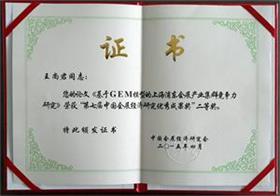 证 书
王尚君同志：
您的论文《基于GEM模型的上海浦东会展产业集群竞争力
研究》荣获“第七届中国会展经济研究优秀成果奖”二等奖。
特此颁发证书
中国会展经济研究会
二〇一五年四月